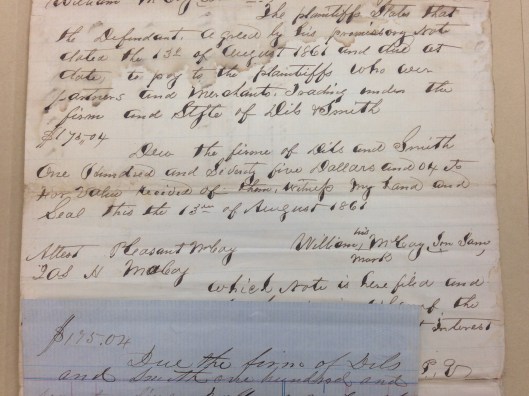 William McCoy
The plaintiffs States that
the Defendant. agreed by his promissory Note
dated the 13th of August 1861 and due at
date, to pay to the plaintiffs who were
partners and Merchants. Trading under the
firm and Style of Dils & Smith
$175.04
Due the firme of Dils and Smith
One Hundred and Seventy five Dollars and 04 cts
for value recived of them, witness my hand and
Seal this the 13th of August 1861
Attest Pleasant McCoy William his McCoy Son Saml
Jas H McCoy mark
which Note is here filed and
the
Interest
$175.04
Due the firm of Dils
and Smith one hundred and